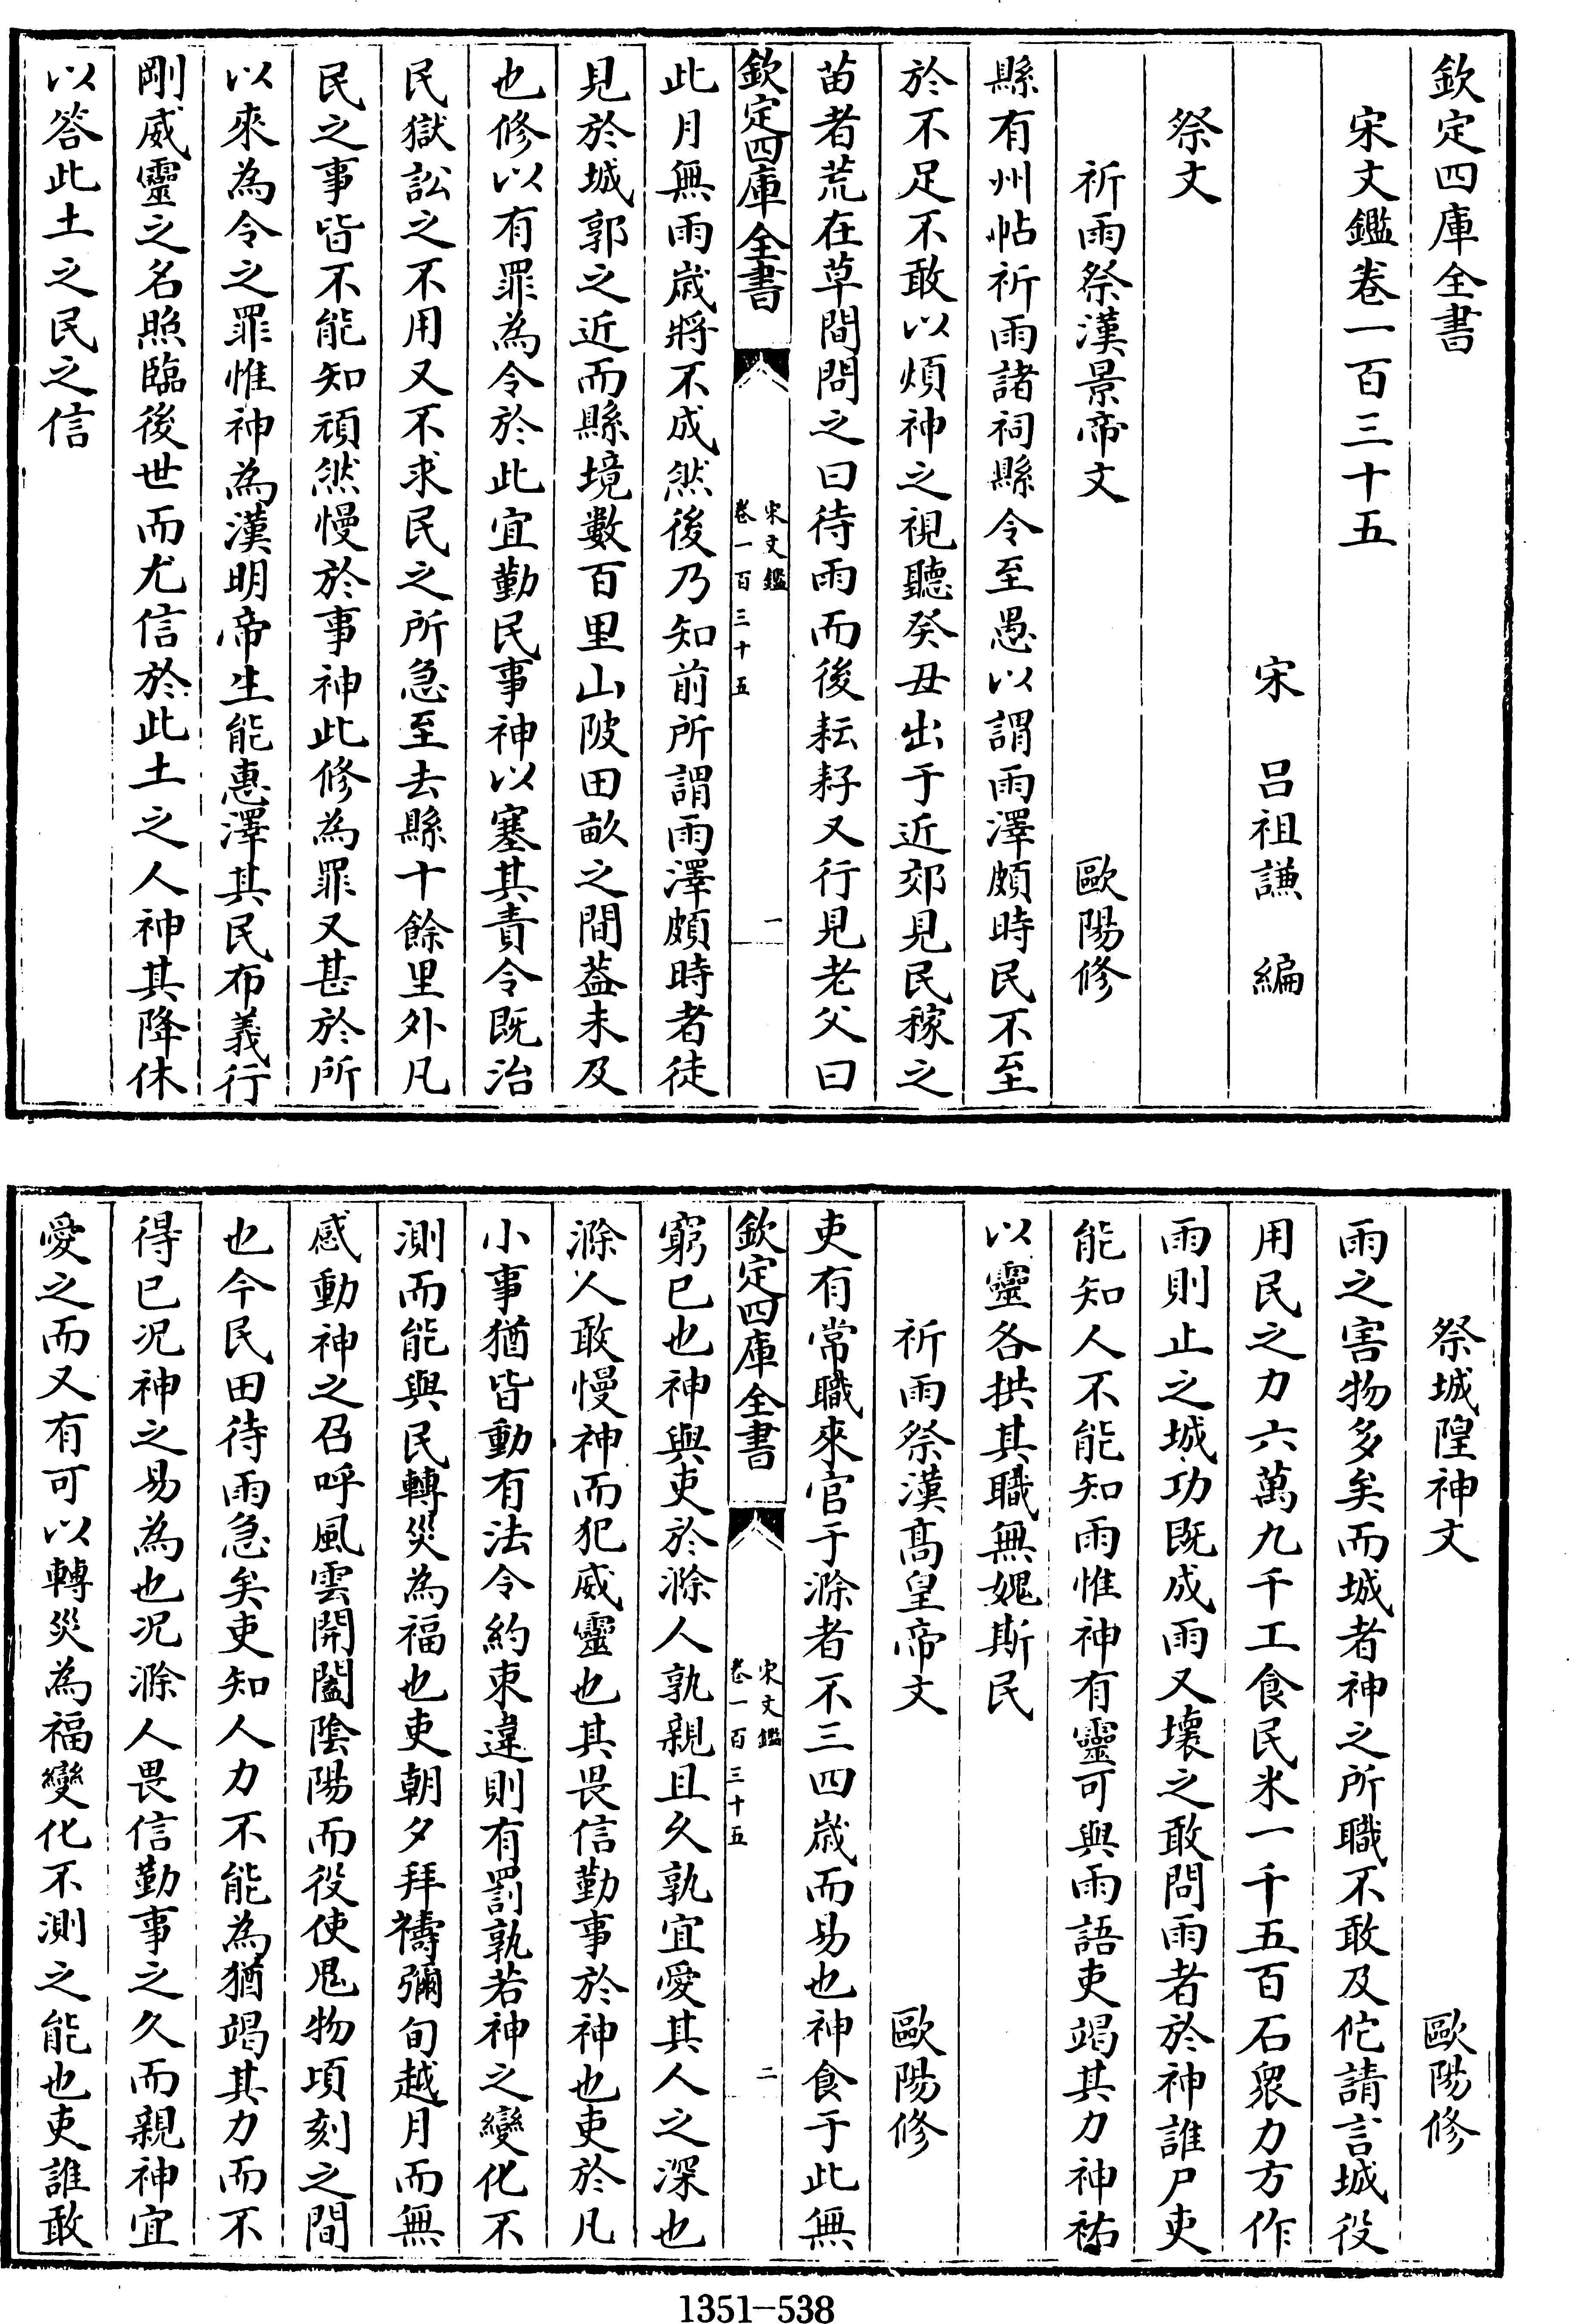 欽定四庫全書
宋文鑑卷一百三十五
宋　呂祖謙　編
祭文
祈雨祭漢景帝文　歐陽修
縣有州帖祈雨諸祠縣令至愚以謂雨澤頗時民不至
於不足不敢以煩神之視聽癸丑出于近郊見民稼之
苗者荒在草間問之曰待雨而後耘耔又行見老父曰
欽定四庫全書　宋文鑑　卷一百三十五　一
此月無雨歳將不成然後乃知前所謂雨澤頗時者徒
見於城郭之近而縣境數百里山陂田畝之間葢未及
也修以有罪為令於此宜勤民事神以塞其責令既治
民獄訟之不用又不求民之所急至去縣十餘里外凡
民之事皆不能知頑然慢於事神此修為罪又甚於所
以來為令之罪惟神為漢明帝生能惠澤其民布義行
剛威靈之名照臨後世而尤信於此土之人神其降休
以答此土之民之信
祭城隍神文　歐陽修
雨之害物多矣而城者神之所職不敢及佗請言城役
用民之力六萬九千工食民米一千五百石衆力方作
雨則止之城功既成雨又壞之敢問雨者於神誰尸吏
能知人不能知雨惟神有靈可與雨語吏竭其力神祐
以靈各拱其職無媿斯民
祈雨祭漢髙皇帝文　歐陽修
吏有常職來官于滁者不三四歳而易也神食于此無
欽定四庫全書　宋文鑑　卷一百三十五　二
窮已也神與吏於滁人孰親且久孰宜愛其人之深也
滁人敢慢神而犯威靈也其畏信勤事於神也吏於凡
小事猶皆動有法令約束違則有罰孰若神之變化不
測而能與民轉災為福也吏朝夕拜禱彌旬越月而無
感動神之召呼風雲開闔陰陽而役使鬼物頃刻之間
也今民田待雨急矣吏知人力不能為猶竭其力而不
得已况神之易為也况滁人畏信勤事之久而親神宜
愛之而又有可以轉災為福變化不測之能也吏誰敢
1351-538